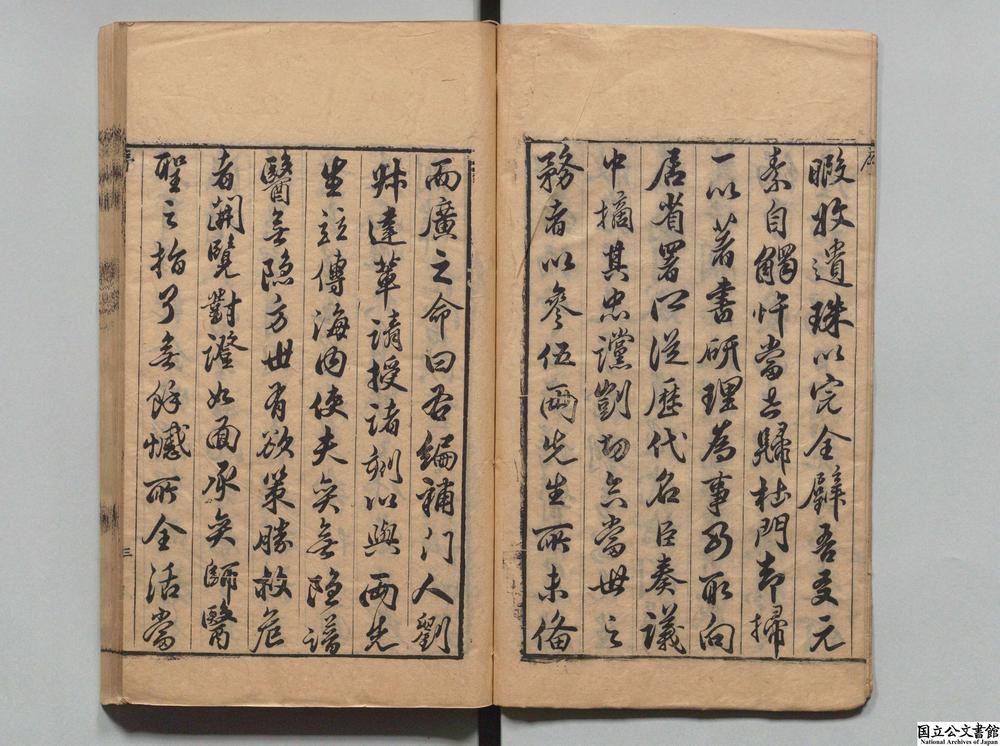 暇收遺珠以完全辟吾友元
素自觸忤當去歸杜門却掃
一以著書研理為事乃取向
居省署口從歷代名臣奏議
中摘其忠讜剴切宜當世之
務者以參伍兩先生所未備
而廣之命曰右編補門人劉
叔達輩請授諸剞以與兩先
生竝傳海内使夫奕無隐譜
醫無隐方世有欲策勝救危
者開覽對證如面承奕師醫
聖之指了無餘憾所全活當
序
三
国立公文書館
National Archives of Japan